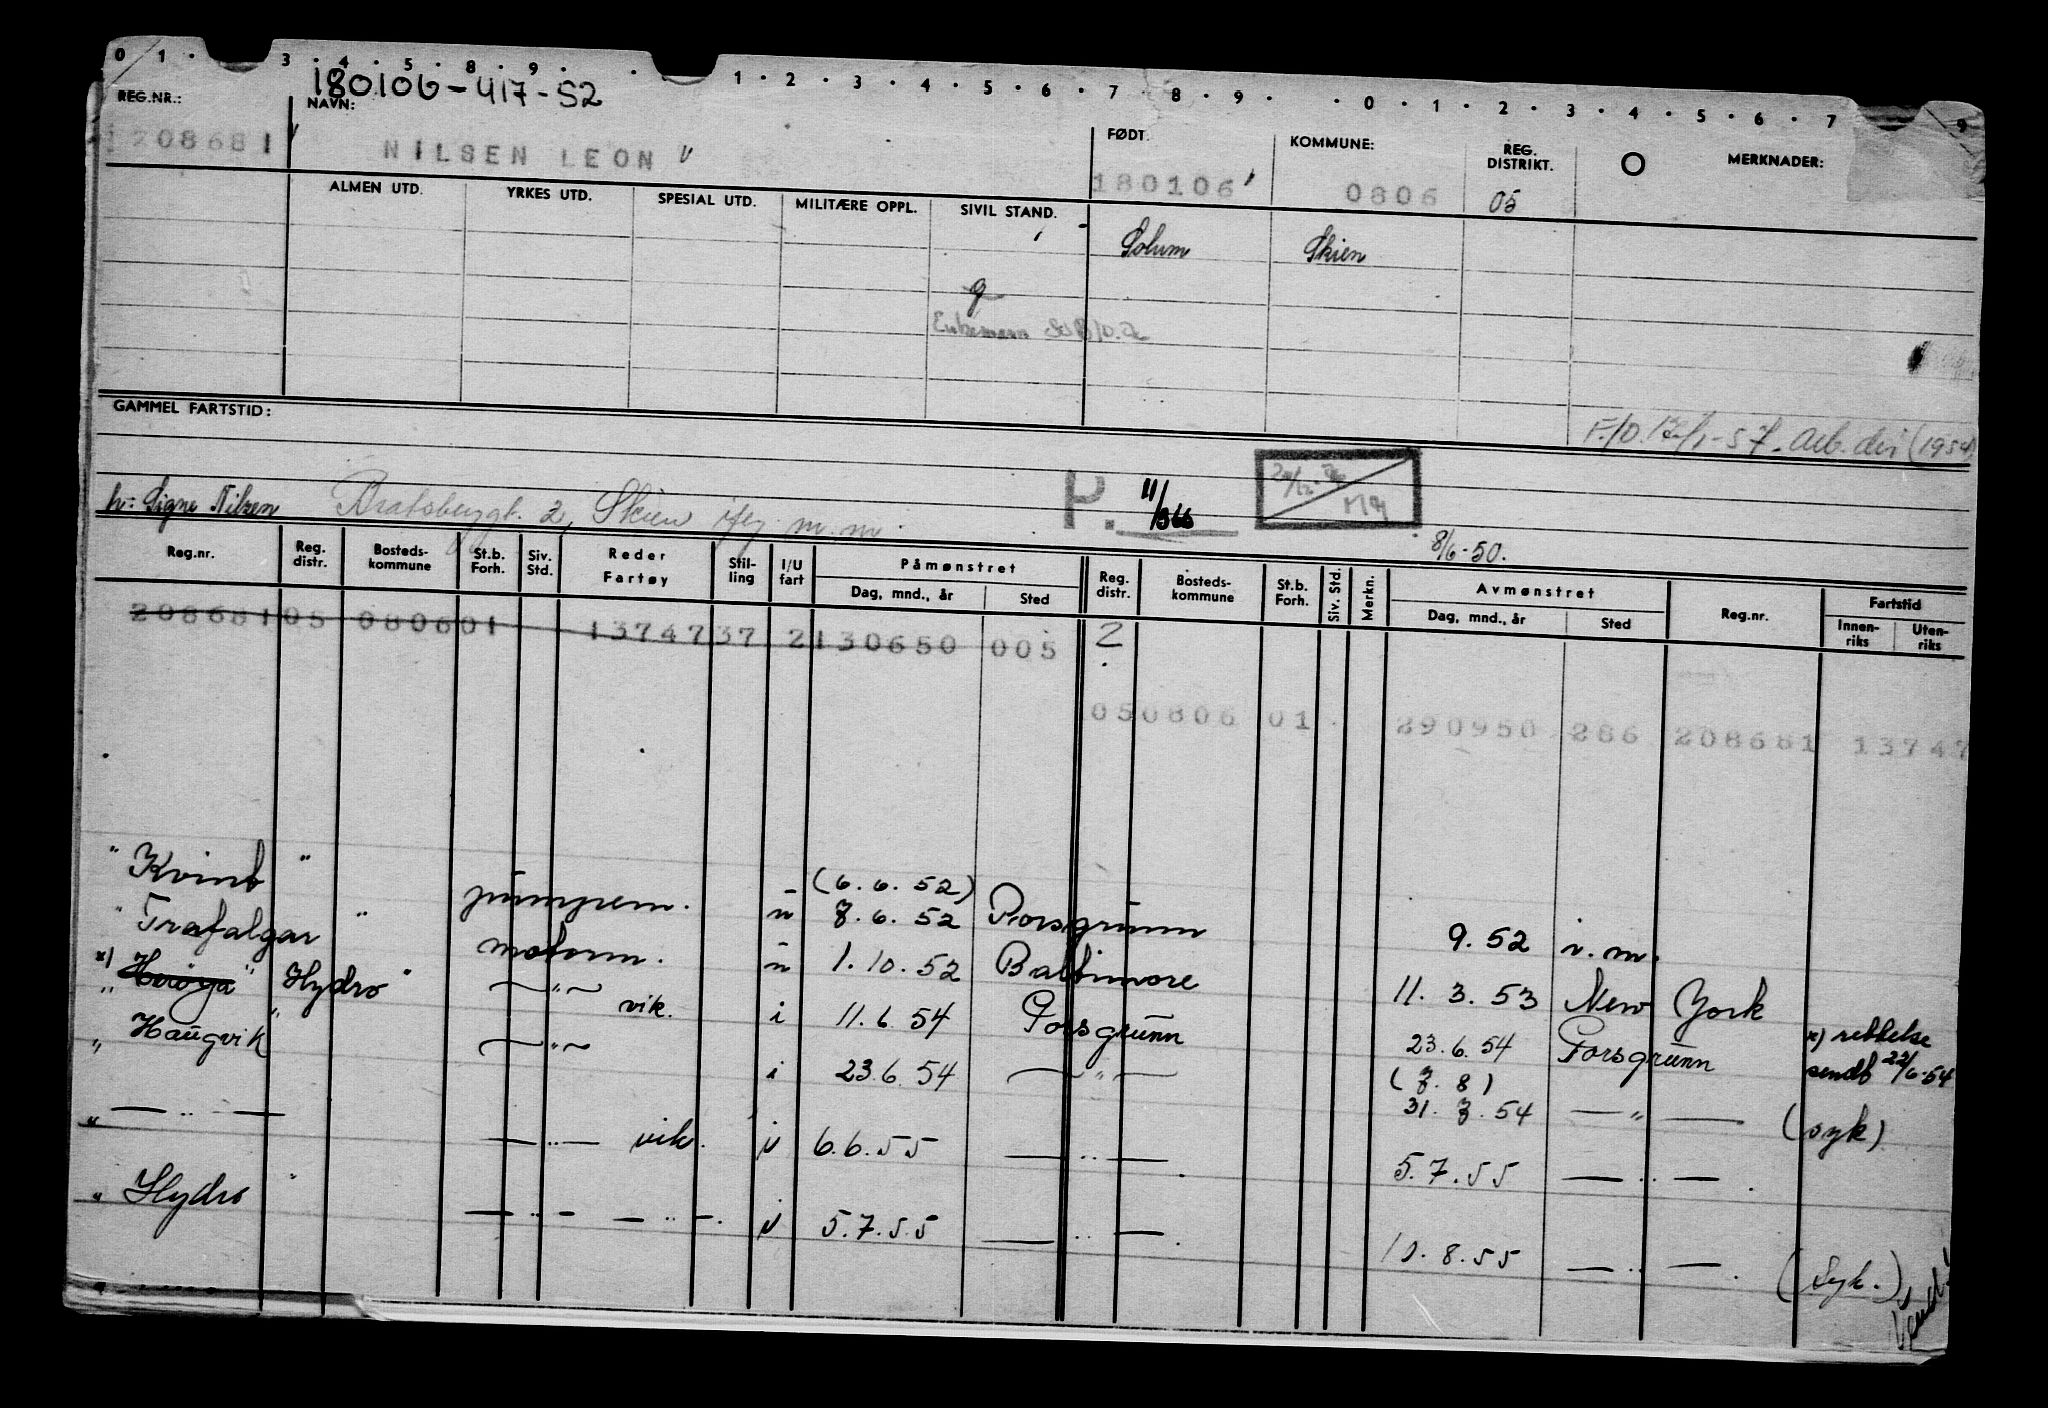 0 1 · 3 · 4 · 5 · 8 · 9 · · 1 · 2 · 3 · 4 · 5 · 6 · 7 · 8 · 9 · · 0 · 1 · 2 · 3 · 4 · 5 · 6 · 7 9
180106-417-52
REG.NR.: NAVN: FØDT. KOMMUNE: REG. DISTRIKT. O MERKNADER:
208681 NILSEN LEON 180106 0806 05
ALMEN UTD. YRKES UTD. SPESIAL UTD. MILITÆRE OPPL. SIVIL STAND.
Solum Skien
g
Enkemann
GAMMEL FARTSTID:
F./O. 12/1-57. Arb. (1954)
h: Signe Nilsen Bratsberggt. 2, Skien m.m.
P. 11/366
8/6-50.
Reg.nr. Reg. distr. Bosteds-kommune St.b. Forh. Siv. Std. Reder Fartøy Stil-ling I/U fart Påmønstret Dag, mnd., år Sted Reg. distr. Bosteds-kommune St.b. Forh. Siv. Std. Merkn. Avmønstret Dag, mnd., år Sted Reg.nr. Fartstid Innen-riks Uten-riks
208681 05 0806 01 13747 37 2 130650 005 2
05 0806 01 290950 286 208681 13747
" Kvint " pumpem. u (6.6.52) 7.6.52 Porsgrunn 9.52 i.m.
" Trafalgar " motorm. u 1.10.52 Baltimore 11.3.53 New York
x) " Herøya " Hydro " —"— vik. i 11.6.54 Porsgrunn 23.6.54 Porsgrunn x) rettelse sendt 22/6-54
" Haugvik " —"— i 23.6.54 —"— (7.8) 31.7.54 —"— (syk)
" —"— —"— vik. 6.6.55 —"— 5.7.55 —"—
" Hydro " —"— —"— 5.7.55 —"— 10.8.55 —"— (Syk.)